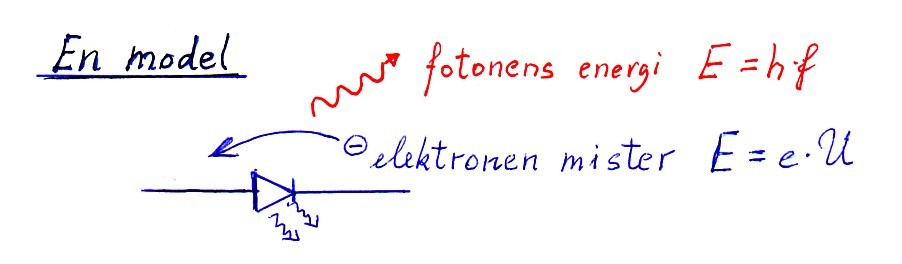 En model
fotonens energi E = h·f
⊖ elektronen mister E = e·U